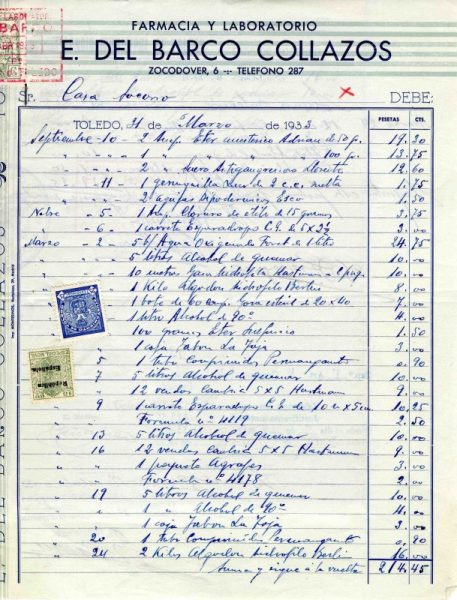 FARMACIA Y LABORATORIO
E. DEL BARCO COLLAZOS
ZOCODOVER, 6 --- TELEFONO 287
Sr. Casa Socorro DEBE:
TOLEDO, 31 de Marzo de 1933 PESETAS CTS.
Septiembre - 10 - 2 Amp. Eter anestésico Adrian de 50 gr. 19.30
" " - 1 " " " " " 100 gr. 13.75
" " - 2 " Suero Antigangrenoso Llorente 12.60
" 11 - 1 jeringuilla Luer de 2 c.c. suelta 1.75
" " - 2 agujas hipodermicas Esco 1.50
Nobre - 5 - 1 Amp. Cloruro de etilo de 15 gramos 3.75
" - 6 - 1 carrete Esparadrapo C.E. de 5 x 2½ 3.00
Marzo - 2 - Agua Oxigenada Foret de 1 litro 24.75
" " - 5 litros Alcohol de quemar 10.00
" " - 10 metros Gasa hidrofila Hartmann 10.00
" " - 1 Kilo Algodon hidrofilo Berli 8.00
" " - 1 bote de 60 Gasa esteril de 20 x 40 7.00
" - 1 litro Alcohol de 90° 4.00
100 gramos Eter Sulfurico 1.50
1 caja Jabon La Toja 3.00
5 1 tubo Comprimidos Permanganato 0.90
7 5 litros Alcohol de quemar 10.00
" 12 vendas Cambric 5 x 5 Hartmann 9.00
" 9 1 carrete Esparadrapo C.E. de 10 m x 5 cm. 10.25
" " Formula n° 4119 2.50
" 13 5 litros Alcohol de quemar 10.00
" 16 12 vendas cambric 5 x 5 Hartmann 9.00
" " 1 paquete Agrafes 3.00
" " Formula n° 4178 2.00
" 19 5 litros Alcohol de quemar 10.00
" " 1 " Alcohol de 90° 4.00
" " 1 caja Jabon La Toja 3.00
" 20 1 tubo Comprimidos Permanganato 0.90
" 24 2 Kilos Algodon hidrofilo Berli 16.00
Suma y sigue á la vuelta 214.45
República Española